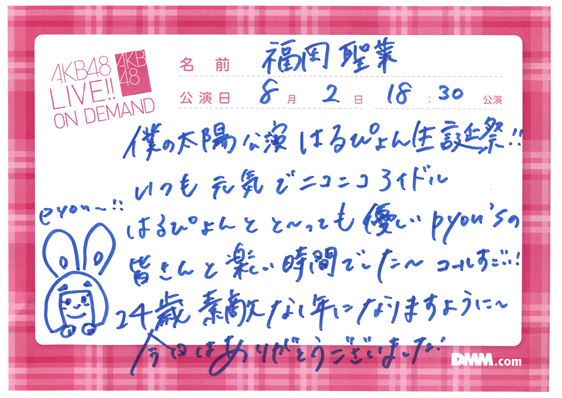 AKB48
LIVE!!
ON DEMAND
AKB
48
名前 福岡聖菜
公演日 8月2日 18:30公演
僕の太陽公演 はるぴょん生誕祭!!
いつも元気でニコニコアイドル
はるぴょんとと〜っても優しいpyon'sの
皆さんと楽しい時間でした〜 コールすごい!
24歳素敵な1年になりますように〜
今日はありがとうございました!
pyon〜!!
DMM.com